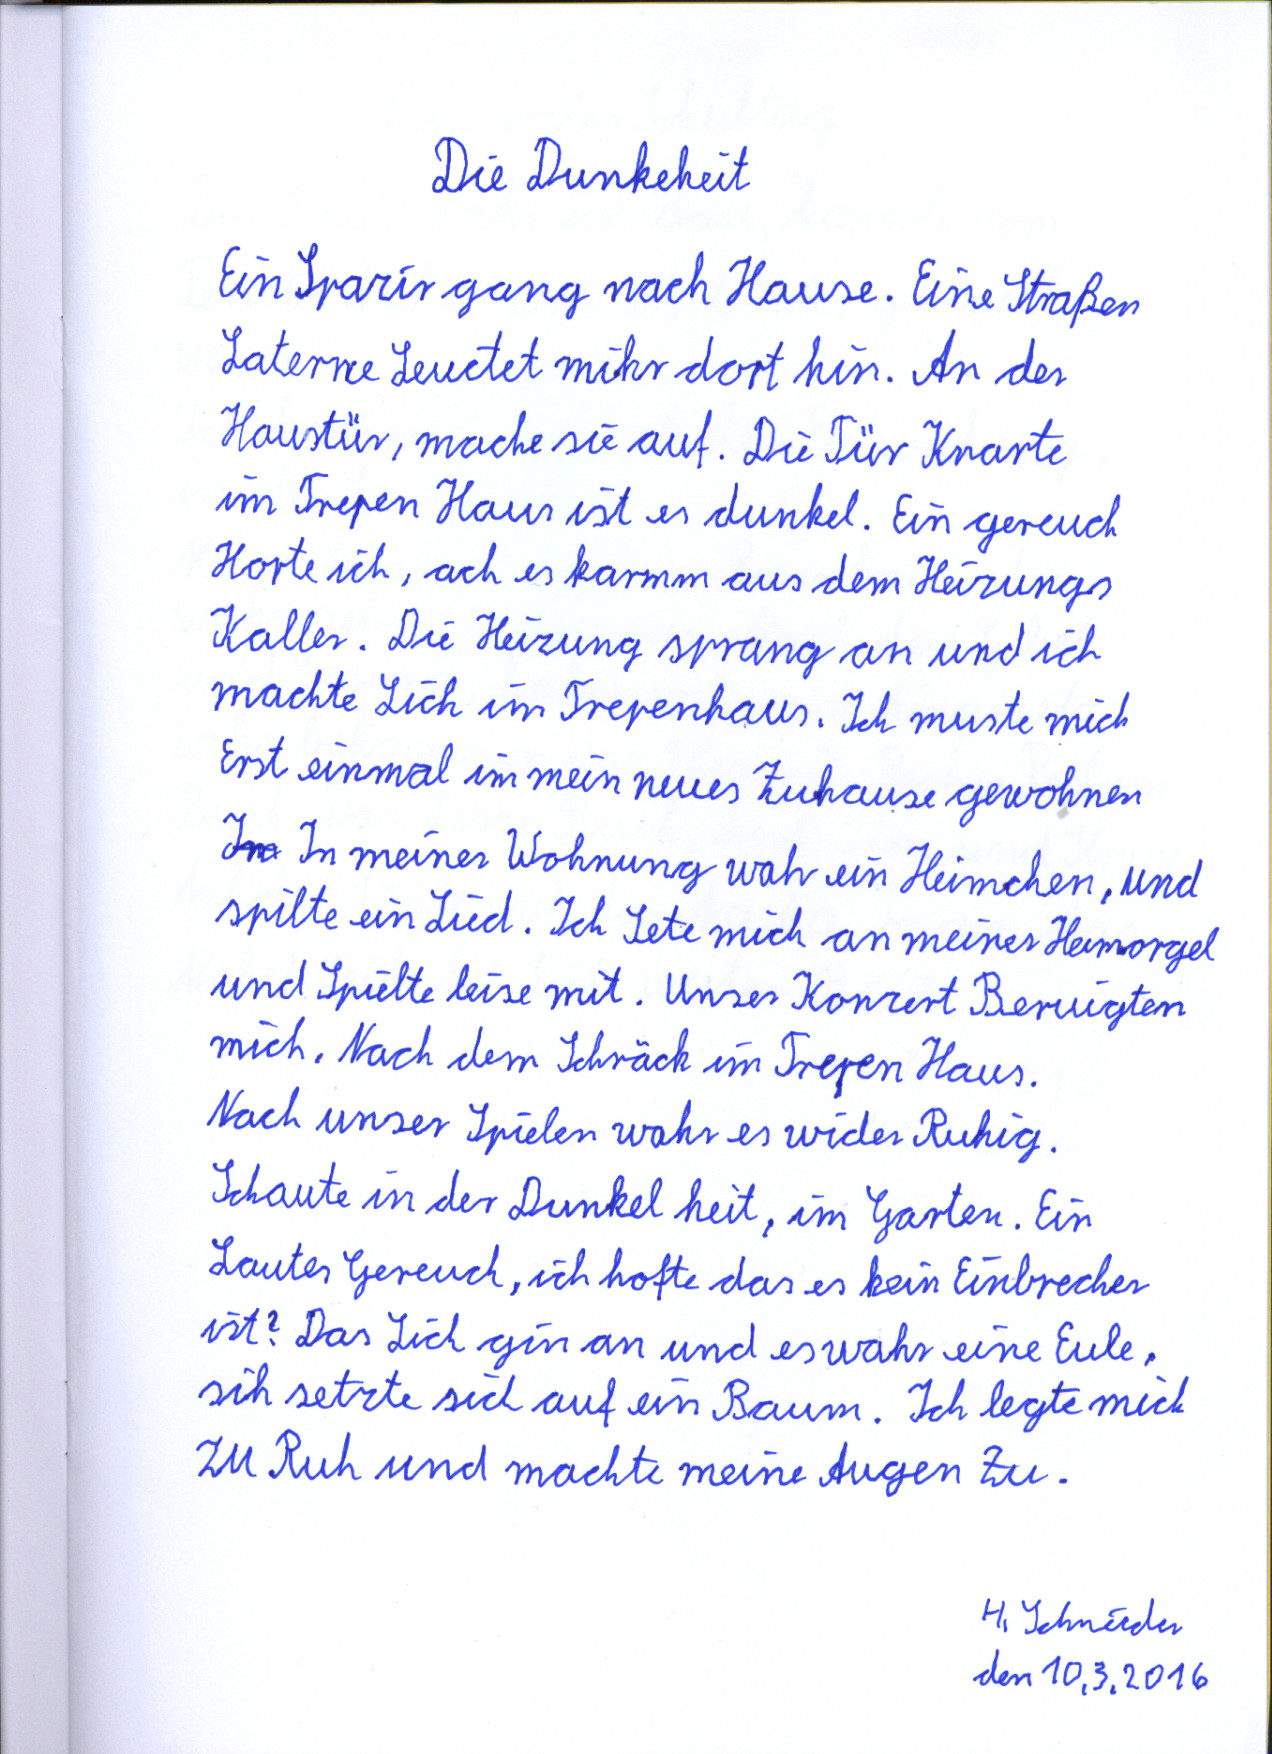 Die Dunkeheit
Ein Spazirgang nach Hause. Eine Straßen
Laterne Leuctet mihr dort hin. An der
Haustür, mache sie auf. Die Tür Knarte
im Trepen Haus ist es dunkel. Ein gereuch
Horte ich, ach es kamm aus dem Heizungs
Kaller. Die Heizung sprang an und ich
machte Lich im Trepenhaus. Ich muste mich
Erst einmal im mein neues Zuhause gewohnen
In meiner Wohnung wahr ein Heimchen, und
spilte ein Lied. Ich Sete mich an meiner Hemorgel
und Spielte leise mit. Unser Konzert Beruigten
mich. Nach dem Schräck im Trepen Haus.
Nach unser Spielen wahr es wider Ruhig.
Schaute in der Dunkel heit, im Garten. Ein
Lauter Gereuch, ich hofte das es kein Einbrecher
ist? Das Lich gin an und es wahr eine Eule,
sih setzte sich auf ein Baum. Ich legte mich
zu Ruh und machte meine Augen Zu.
H. Schneider
den 10.3.2016